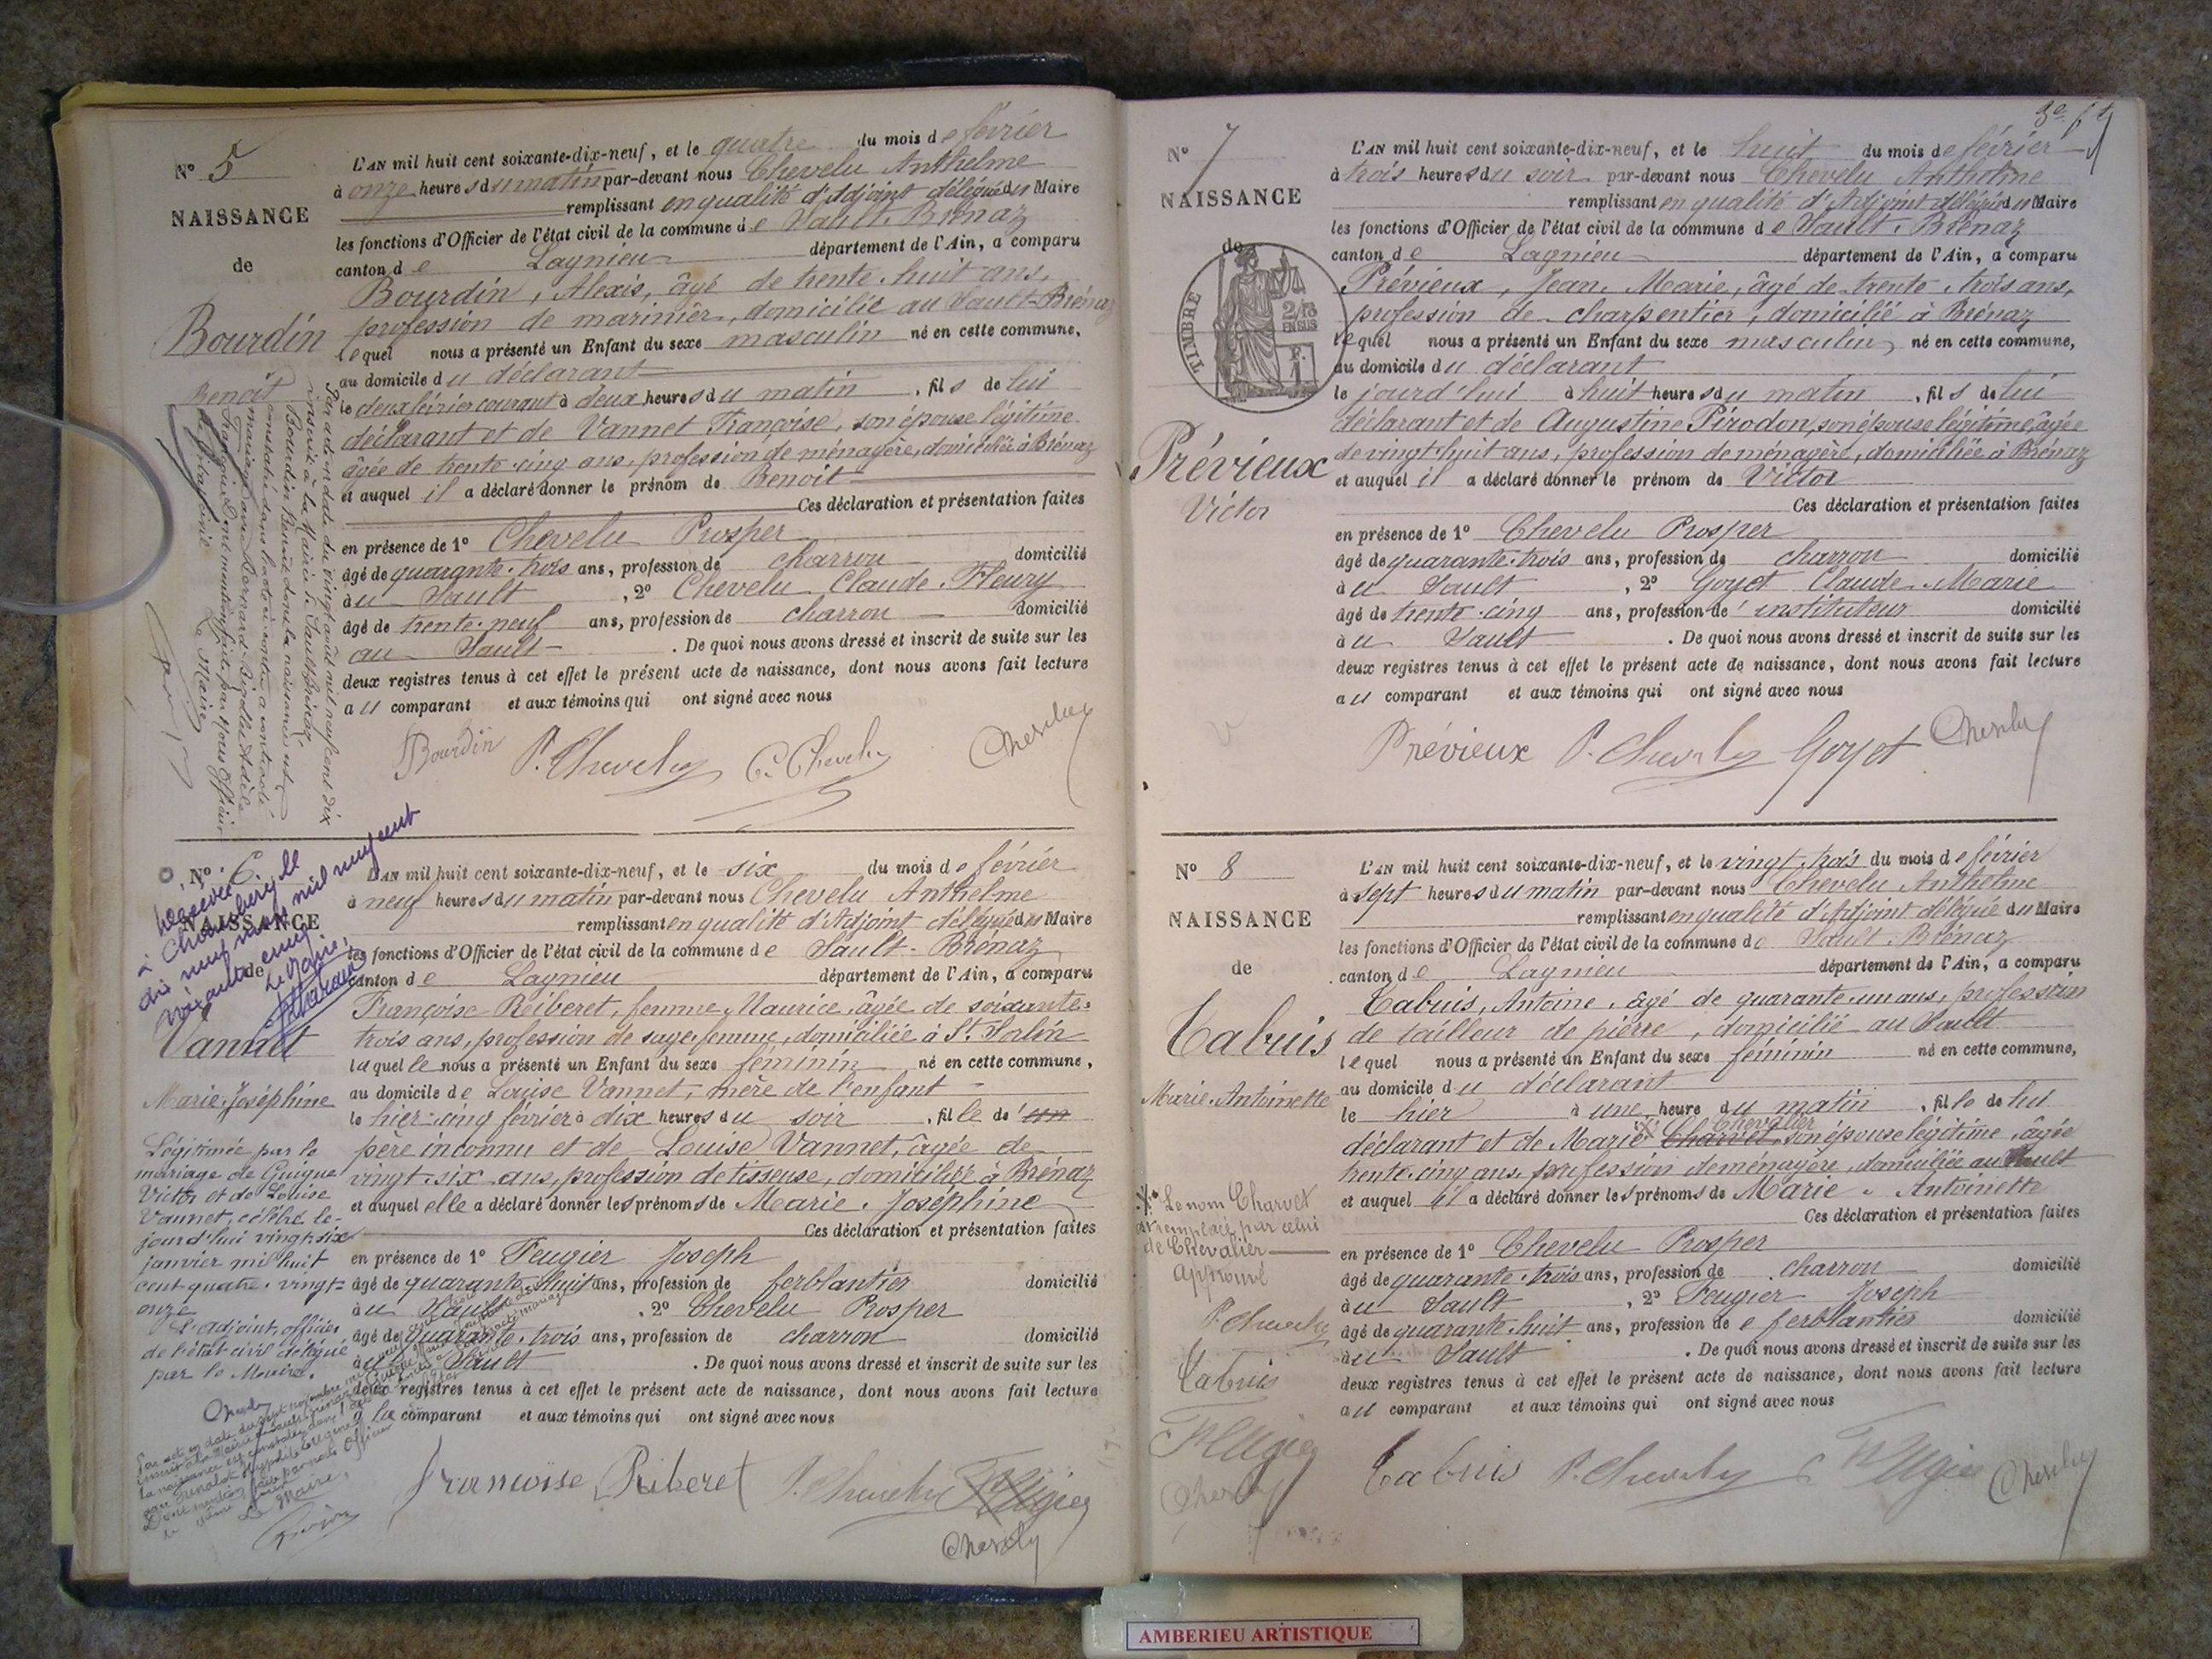 N° 5
NAISSANCE
de
Bourdin
Benoit
L'AN mil huit cent soixante-dix-neuf, et le quatre du mois de février
à onze heures du matin par-devant nous Chevelu Anthelme
remplissant en qualité d'Adjoint délégué du Maire
les fonctions d'Officier de l'état civil de la commune de Sault-Brénaz
canton de Lagnieu département de l'Ain, a comparu
Bourdin, Alexis, âgé de trente-huit ans,
profession de marinier, domicilié au Sault-Brénaz
lequel nous a présenté un Enfant du sexe masculin né en cette commune,
au domicile du déclarant
le deux février courant à deux heures du matin, fils de lui
déclarant et de Vannet Françoise, son épouse légitime
âgée de trente-cinq ans, profession de ménagère, domiciliée à Brénaz
et auquel il a déclaré donner le prénom de Benoit
Ces déclaration et présentation faites
en présence de 1° Chevelu Prosper
âgé de quarante-trois ans, profession de charron domicilié
au Sault, 2° Chevelu Claude-Fleury
âgé de trente-neuf ans, profession de charron domicilié
au Sault. De quoi nous avons dressé et inscrit de suite sur les
deux registres tenus à cet effet le présent acte de naissance, dont nous avons fait lecture
au comparant et aux témoins qui ont signé avec nous
Bourdin P. Chevelu C. Chevelu Chevelu
Par acte en date du vingt août mil neuf cent dix
inscrit à la Mairie de Sault-Brénaz
Bourdin Benoit dont la naissance est
constatée dans l'acte ci-contre a contracté
mariage avec
Dont mention faite par Nous Officier
de l'état civil Le Maire
N° 6
NAISSANCE
de
Vannet
Marie-Joséphine
L'AN mil huit cent soixante-dix-neuf, et le six du mois de février
à neuf heures du matin par-devant nous Chevelu Anthelme
remplissant en qualité d'Adjoint délégué du Maire
les fonctions d'Officier de l'état civil de la commune de Sault-Brénaz
canton de Lagnieu département de l'Ain, a comparu
Françoise Reiberet, femme Maurice, âgée de soixante-
trois ans, profession de sage-femme, domiciliée à St. Sorlin
laquelle nous a présenté un Enfant du sexe féminin né en cette commune,
au domicile de Louise Vannet, mère de l'enfant
le hier cinq février à dix heures du soir, fille de un
père inconnu et de Louise Vannet, âgée de
vingt-six ans, profession de tisseuse, domiciliée à Brénaz
et auquel elle a déclaré donner les prénoms de Marie-Joséphine
Ces déclaration et présentation faites
en présence de 1° Feugier Joseph
âgé de quarante-huit ans, profession de ferblantier domicilié
au Sault, 2° Chevelu Prosper
âgé de quarante-trois ans, profession de charron domicilié
au Sault. De quoi nous avons dressé et inscrit de suite sur les
deux registres tenus à cet effet le présent acte de naissance, dont nous avons fait lecture
à la comparant et aux témoins qui ont signé avec nous
françoise Riberet P. Chevelu Feugier
Chevelu
à Chambéry le
dix neuf mars mil neuf cent
soixante cinq
Le Maire,
Légitimée par le
mariage de Guigue
Victor et de Louise
Vannet, célébré le
jourd'hui vingt-six
janvier mil huit
cent quatre-vingt-
onze
L'adjoint, officier
de l'état civil délégué
par le Maire.
Chevelu
Le Maire,
N° 7
NAISSANCE
de
TIMBRE
2/10
EN SUS
Prévieux
Victor
L'AN mil huit cent soixante-dix-neuf, et le huit du mois de février
à trois heures du soir par-devant nous Chevelu Anthelme
remplissant en qualité d'Adjoint délégué du Maire
les fonctions d'Officier de l'état civil de la commune de Sault-Brénaz
canton de Lagnieu département de l'Ain, a comparu
Prévieux, Jean-Marie, âgé de trente-trois ans,
profession de charpentier, domicilié à Brénaz
lequel nous a présenté un Enfant du sexe masculin, né en cette commune,
au domicile du déclarant
le jourd'hui à huit heures du matin, fils de lui
déclarant et de Augustine Pirodon, son épouse légitime, âgée
de vingt-huit ans, profession de ménagère, domiciliée à Brénaz
et auquel il a déclaré donner le prénom de Victor
Ces déclaration et présentation faites
en présence de 1° Chevelu Prosper
âgé de quarante-trois ans, profession de charron domicilié
au Sault, 2° Goyet Claude-Marie
âgé de trente-cinq ans, profession de instituteur domicilié
au Sault. De quoi nous avons dressé et inscrit de suite sur les
deux registres tenus à cet effet le présent acte de naissance, dont nous avons fait lecture
au comparant et aux témoins qui ont signé avec nous
Prévieux P. Chevelu Goyet Chevelu
N° 8
NAISSANCE
de
Cabuis
Marie-Antoinette
L'AN mil huit cent soixante-dix-neuf, et le vingt-trois du mois de février
à sept heures du matin par-devant nous Chevelu Anthelme
remplissant en qualité d'Adjoint délégué du Maire
les fonctions d'Officier de l'état civil de la commune de Sault-Brénaz
canton de Lagnieu département de l'Ain, a comparu
Cabuis, Antoine, âgé de quarante-un ans, profession
de tailleur de pierre, domicilié au Sault
lequel nous a présenté un Enfant du sexe féminin né en cette commune,
au domicile du déclarant
le hier à une heure du matin, fille de lui
Chevalier
déclarant et de Marie Charvet, son épouse légitime, âgée
trente-cinq ans, profession de ménagère, domiciliée au Sault
et auquel il a déclaré donner les prénoms de Marie-Antoinette
Ces déclaration et présentation faites
en présence de 1° Chevelu Prosper
âgé de quarante-trois ans, profession de charron domicilié
au Sault, 2° Feugier Joseph
âgé de quarante-huit ans, profession de ferblantier domicilié
au Sault. De quoi nous avons dressé et inscrit de suite sur les
deux registres tenus à cet effet le présent acte de naissance, dont nous avons fait lecture
au comparant et aux témoins qui ont signé avec nous
Cabuis P. Chevelu Feugier Chevelu
Le nom Charvet
est remplacé par celui
de Chevalier
Approuvé
P. Chevelu
Cabuis
Feugier
Chevelu
AMBERIEU ARTISTIQUE